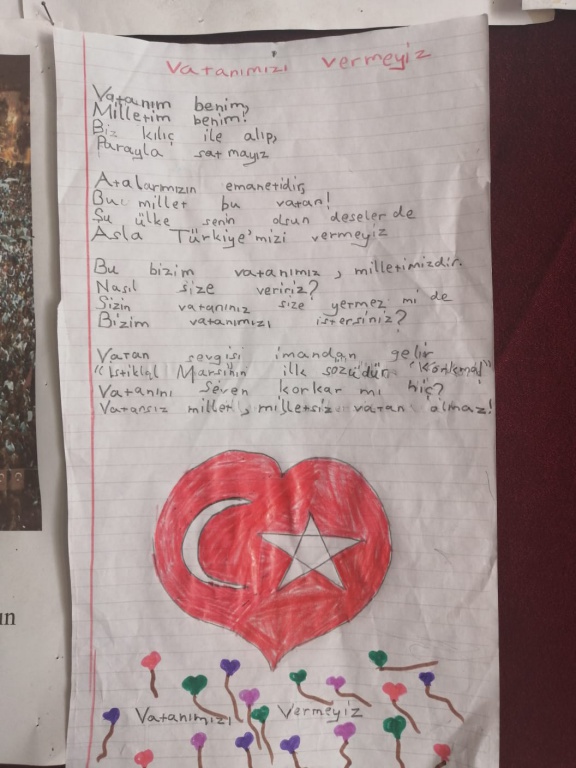 Vatanımızı vermeyiz
Vatanım benim,
Milletim benim!
Biz kılıç ile alıp,
Parayla satmayız
Atalarımızın emanetidir,
Bu millet bu vatan!
Şu ülke senin olsun deseler de
Asla Türkiye'mizi vermeyiz
Bu bizim vatanımız, milletimizdir.
Nasıl size veririz?
Sizin vatanınız size yetmez mi de
Bizim vatanımızı istersiniz?
Vatan sevgisi imandan gelir
"İstiklal Marşının ilk sözüdür "Korkma!"
Vatanını seven korkar mı hiç?
Vatansız millet, milletsiz vatan olmaz!
Vatanımızı Vermeyiz
ın